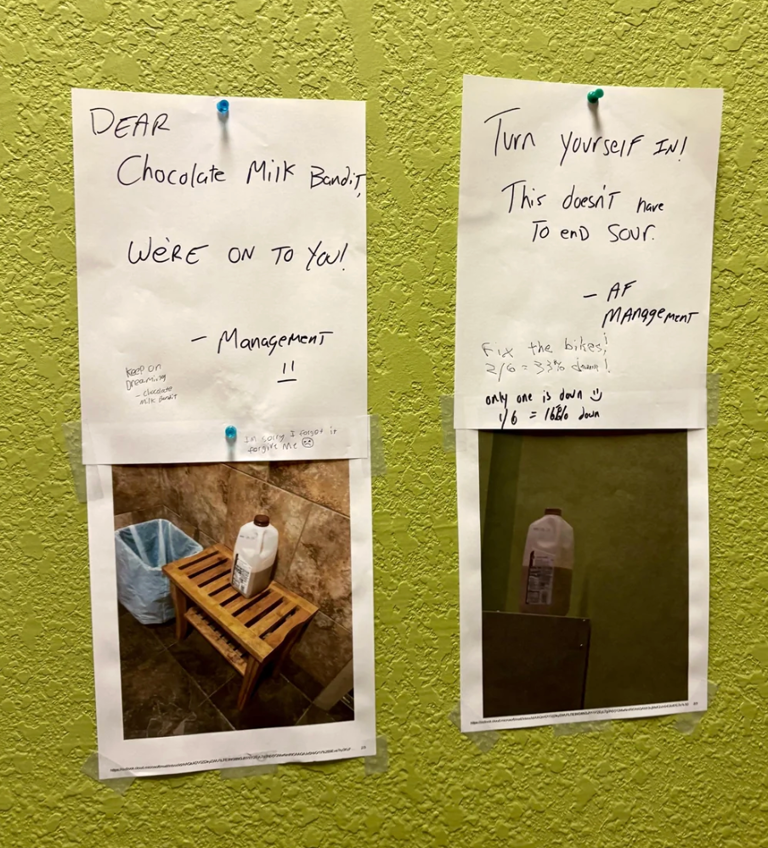 DEAR
Chocolate Milk Bandit,
WE'RE ON TO YOU!
- Management
Keep on
Dreaming
- chocolate
Milk Bandit
I'm sorry I forgot it
forgive me
Turn yourself IN!
This doesn't have
To end sour.
- AF
Management
Fix the bikes!
2/6 = 33% down!
only one is down
1/6 = 16% down